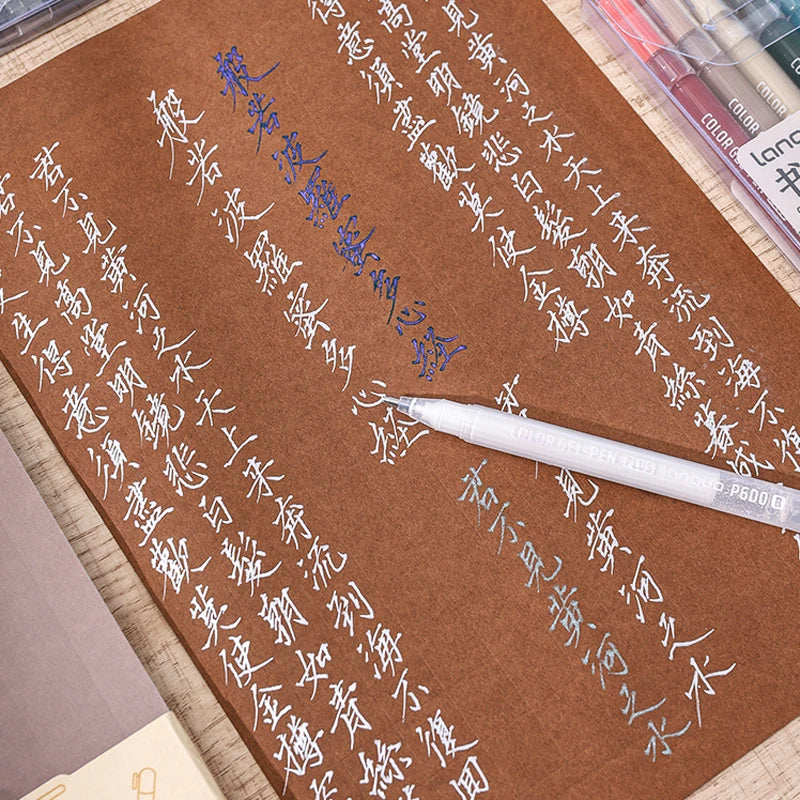 見黃河之水天上来奔流到海不復
高堂明鏡悲白髮朝如青絲暮成
得意須盡歡莫使金樽
般若波羅蜜多心經
般若波羅蜜多心經
見黃河之水
君不見黃河之水
君不見黃河之水天上来奔流到海不復回
君不見高堂明鏡悲白髮朝如青絲
生得意須盡歡莫使金樽
COLOR GEL-PEN PLUS languo P600
COLOR GEL
COLOR
COLOR